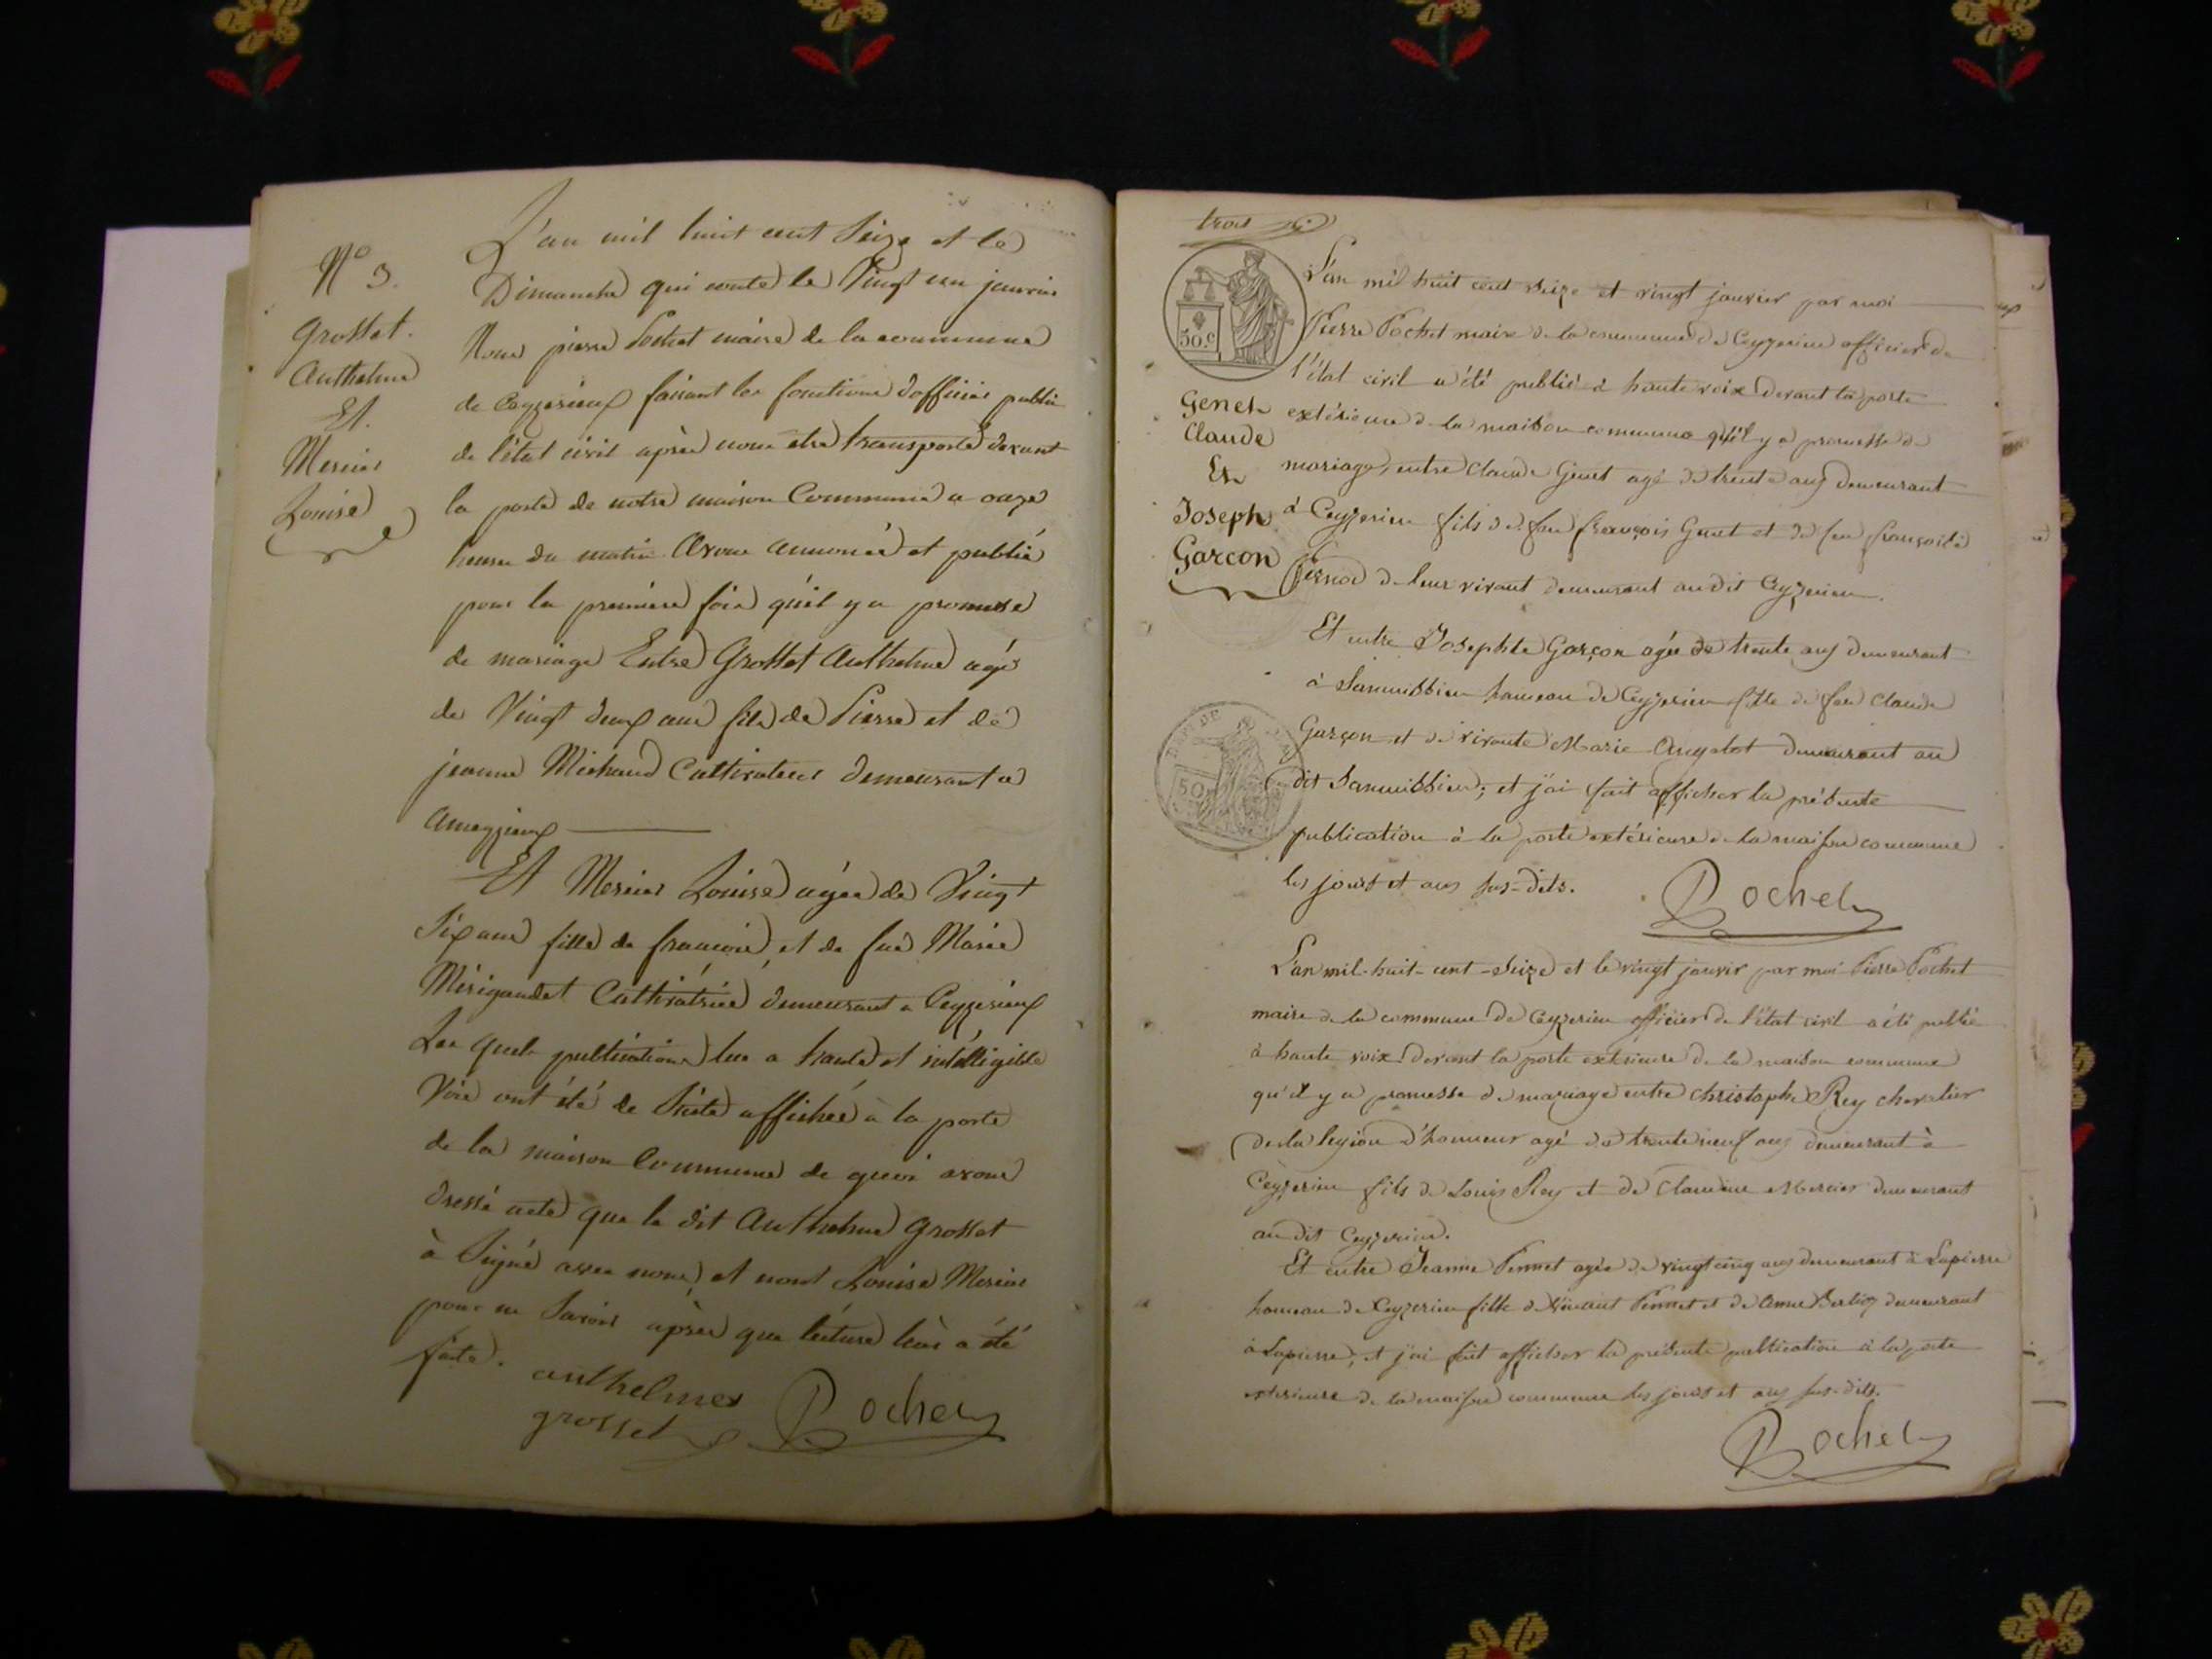 N° 3.
Grosset.
Anthelme
Et.
Mercier
Louise
L'an mil huit cent Seize et le
Dimanche qui conte le Vingt un janvier
Nous pierre Pochet maire de la commune
de Ceyzerieux faisant les fonctions d'officier public
de l'état civil après nous etre transporté devant
la porte de notre maison Commune a onze
heures du matin Avons annoncé et publié
pour la premiere fois qu'il y a promesse
de mariage Entre Grosset Anthelme agé
de Vingt deux ans fils de Pierre et de
jeanne Michaud Cultivateur demeurant a
Ameyzieux
Et Mercier Louise agée de Vingt
Six ans fille de francois, et de fue Marie
Mérigaudet Cultivatrice demeurant a Ceyzerieux
Les quels publications lue a haute et intélligible
Voie ont été de Suite affichée à la porte
de la maison Commune de quoi avons
dressé acte que le dit Anthelme Grosset
à Signé avec nous, et nont Louise Mercier
pour ne Savoir après que lecture leur a été
faite.
anthelmes
grosset
Pochet
trois
50.c
Genet
Claude
Et
Joseph
Garcon
L'an mil huit cent Seize et vingt janvier par moi
Pierre Pochet maire de la commune de Ceyzerieu officier de
l'état civil a été publié à haute voix devant la porte
extérieure de la maison commune qu'il y a promesse de
mariage, entre Claude Genet agé de trente ans demeurant
à Ceyzerieu fils de feu françois Genet et de feu françoise
de leur vivant demeurant au dit Ceyzerieu.
Et entre Josephte Garçon agée de trente ans demeurant
à hameau de Ceyzerieu fille de feu Claude
Garçon et de vivante Marie demeurant au
dit et j'ai fait afficher la présente
publication à la porte extérieure de la maison commune
les jours et ans sus-dits.
Pochet
DEP. DE
50
L'an mil-huit-cent-Seize et le vingt janvir par moi Pierre Pochet
maire de la commune de Ceyzerieu officier de l'état civil a été publié
à haute voix devant la porte extérieure de la maison commune
qu'il y a promesse de mariage entre Christophe Rey chevalier
de la legion d'honneur agé de trente neuf ans demeurant à
Ceyzerieu fils de Louis Rey et de Claudine Mercier demeurant
au dit Ceyzerieu.
Et entre Jeanne agée de vingt cinq ans demeurant à Lapierre
hameau de Ceyzerieu fille de et de Anne demeurant
à Lapierre, et j'ai fait afficher la présente publication à la porte
exterieure de la maison commune les jours et ans sus-dits.
Pochet